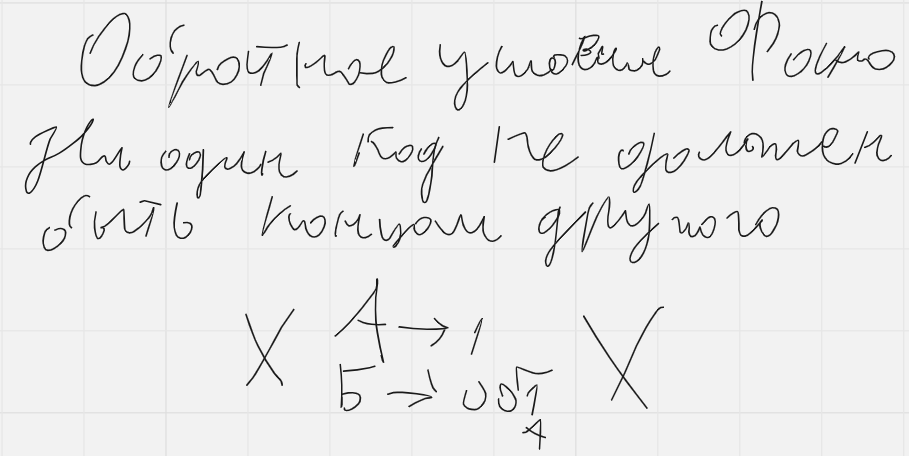 Обратное условие Фано
Ни один код не должен
быть концом другого
X А → 1 X
Б → 001
А